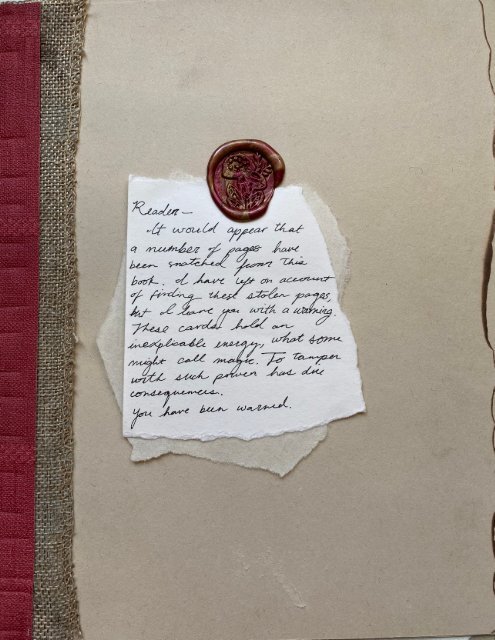 Reader—
It would appear that
a number of pages have
been snatched from this
book. I have left on account
of finding these stolen pages,
but I leave you with a warning.
These cards hold an
inexplicable energy, what some
might call magic. To tamper
with such power has due
consequences.
You have been warned.